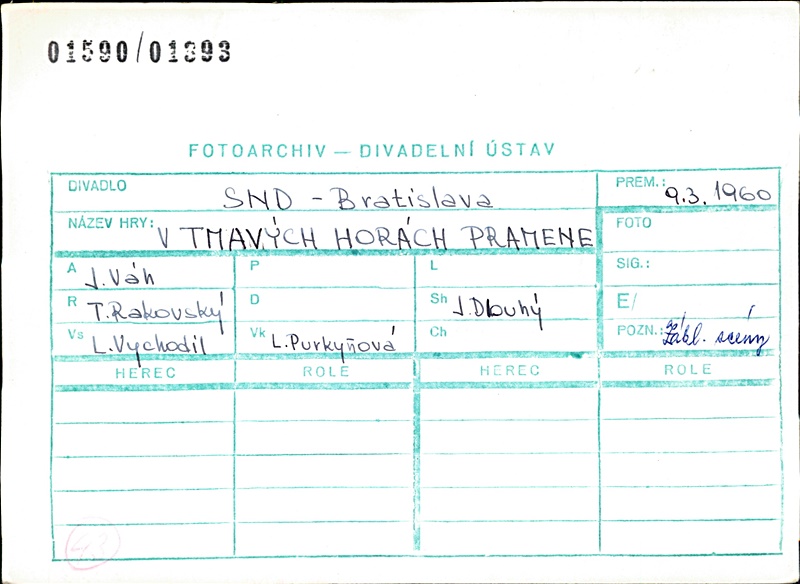 01590/01393
FOTOARCHIV — DIVADELNÍ ÚSTAV
DIVADLO SND - Bratislava PREM.: 9.3.1960
NÁZEV HRY: V TMAVÝCH HORÁCH PRAMENE FOTO
A J. Váh P L SIG.:
R T. Rakovský D Sh J. Dlouhý E/
Vs L. Vychodil Vk L. Purkyňová Ch POZN.: zákl. scény
HEREC ROLE HEREC ROLE